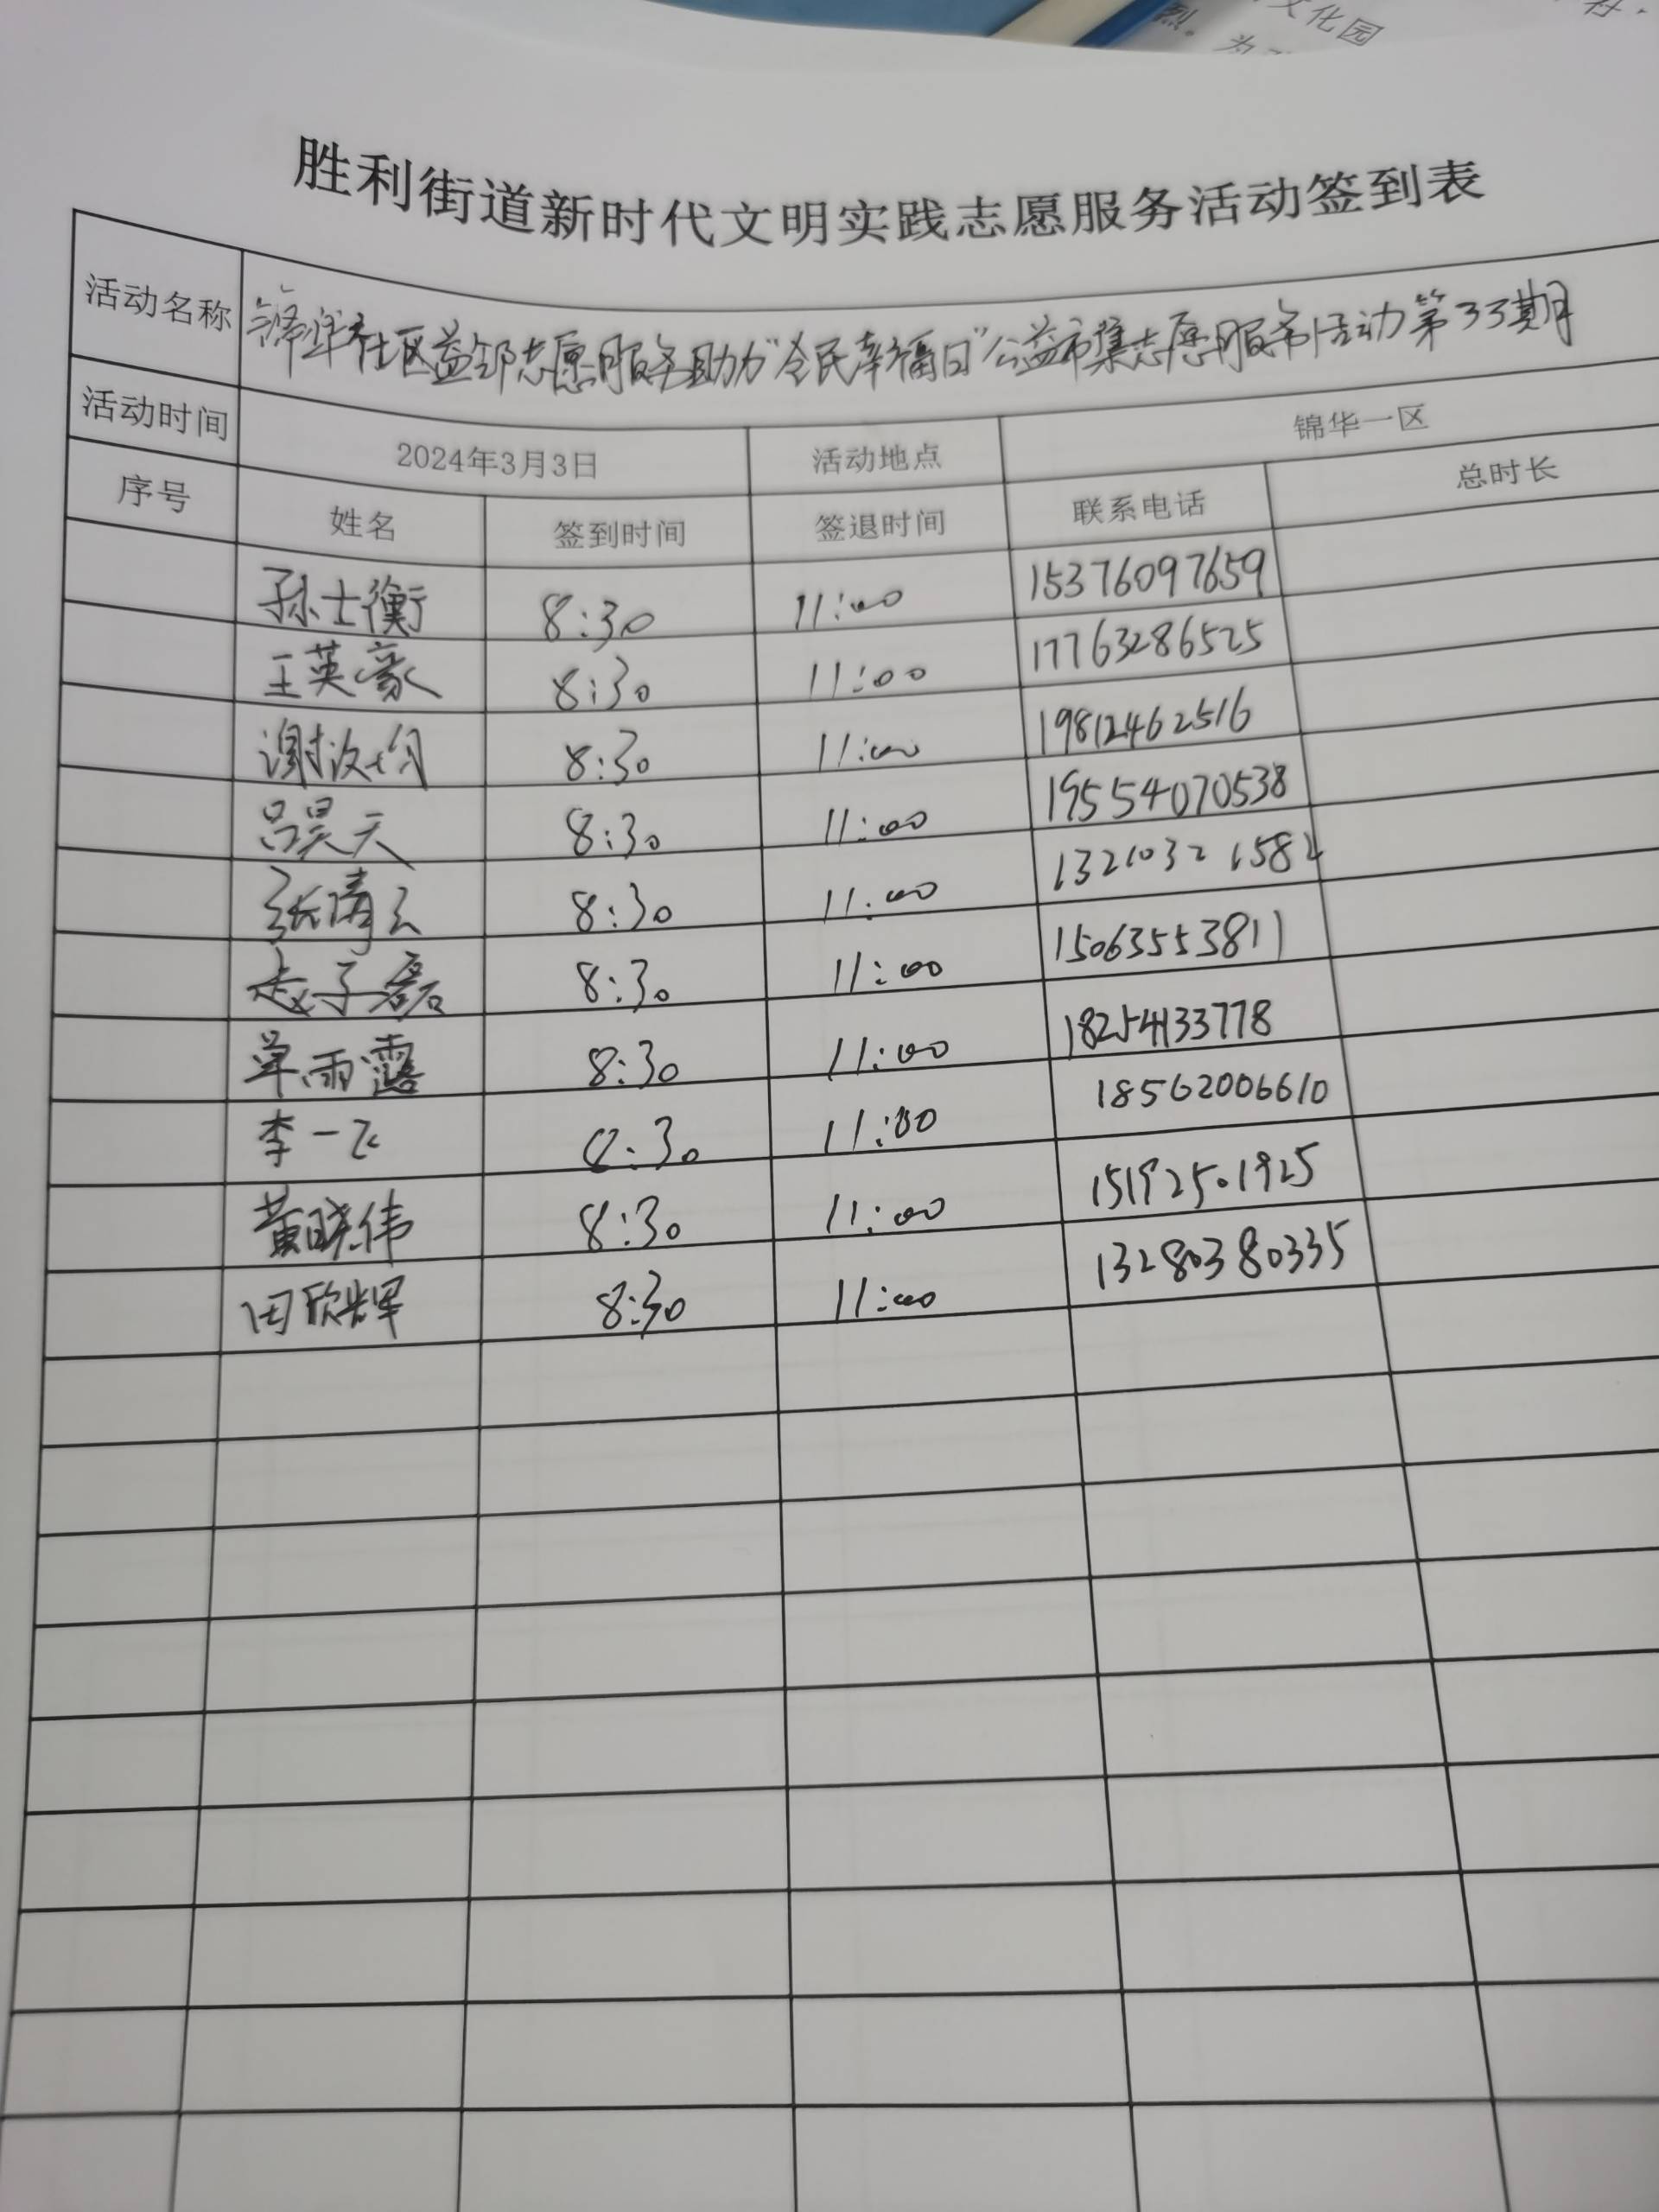 文化园
烈。为
社
胜利街道新时代文明实践志愿服务活动签到表
活动名称 锦华社区益邻志愿服务助力"令民幸福日"公益市集志愿服务活动第33期
活动时间 2024年3月3日 活动地点 锦华一区
序号 姓名 签到时间 签退时间 联系电话 总时长
孙士衡 8:30 11:00 15376097659
王英豪 8:30 11:00 17763286525
谢汝均 8:30 11:00 19812462516
吕昊天 8:30 11:00 19554070538
张清云 8:30 11:00 13210321582
赵子磊 8:30 11:00 15063553811
单雨露 8:30 11:00 18254133778
李一飞 8:30 11:00 18562006610
黄晓伟 8:30 11:00 15192501925
田欣辉 8:30 11:00 13280380335